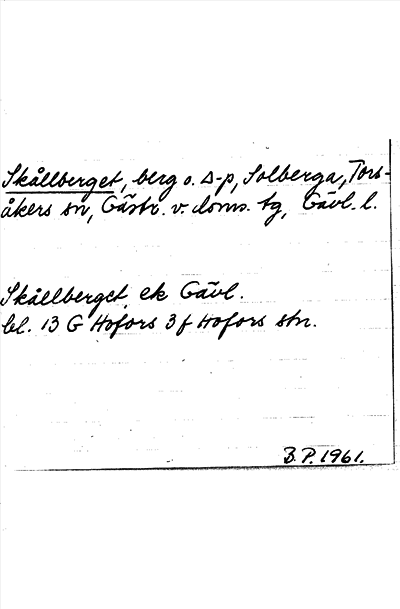 Skållberget, berg o. Δ-p, Solberga, Tors-
åkers sn, Gästr. v. doms. tg, Gävl. l.
Skållberget ek Gävl.
bl. 13 G Hofors 3 f Hofors stn.
B.P. 1961.